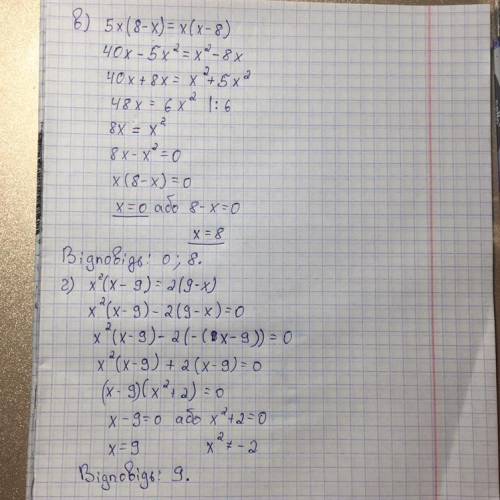 в) 5x(8-x)=x(x-8)
40x-5x²=x²-8x
40x+8x=x²+5x²
48x=6x² |:6
8x=x²
8x-x²=0
x(8-x)=0
x=0 або 8-x=0
x=8
Відповідь: 0; 8.
г) x²(x-9)=2(9-x)
x²(x-9)-2(9-x)=0
x²(x-9)-2(-(x-9))=0
x²(x-9)+2(x-9)=0
(x-9)(x²+2)=0
x-9=0 або x²+2=0
x=9 x²≠-2
Відповідь: 9.